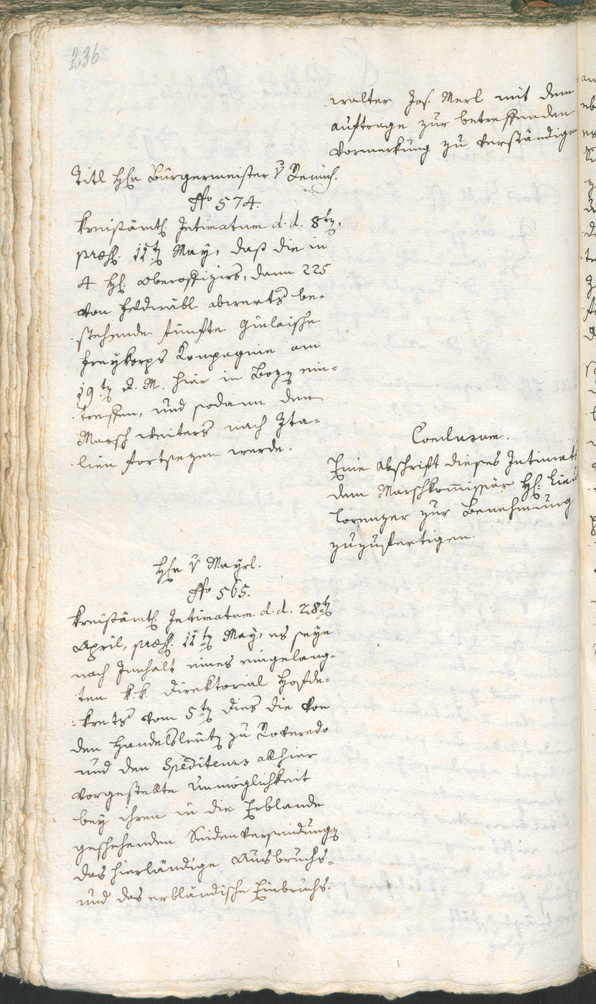 236
walter Jos. Merl mit dem
auftrage zur betreffenden
Vormerkung zu verständige
Titl Hr. Bürgermeister v
No 574.
Kreisämtl. Intimatum d. d. 8t,
praes. 11t May, daß die in
4 H. Oberoffiziers, dann 225
von Feldwäbl abwerts be-
stehende fünfte Giulaische
Freykorps Kompagnie am
19t d. M. hier in Bozn ein-
treffen, und sodann den
Marsch weiters nach Ita-
lien fortsezen werde.
Conclusum.
Eine Abschrift dieses Intimat
dem Marschkommissär H.
Lorenzer zur Benehmung
zuzufertigen.
Hr. v Mayrl.
No 565.
Kreisämtl. Intimatum d. d. 28t
April, praes. 11t May, es seye
nach Innhalt eines eingelang-
ten k. k. Direktorial Hofde-
krets vom 5t dies die von
den Handelsleuten zu Roveredo
und den Spediteurs allhier
vorgestelte Unmöglichkeit
bey ihren in die Erblande
geschehenden Seidenversendungen
das hierländige Ausbruchs-
und das erbländische Einbruchs-